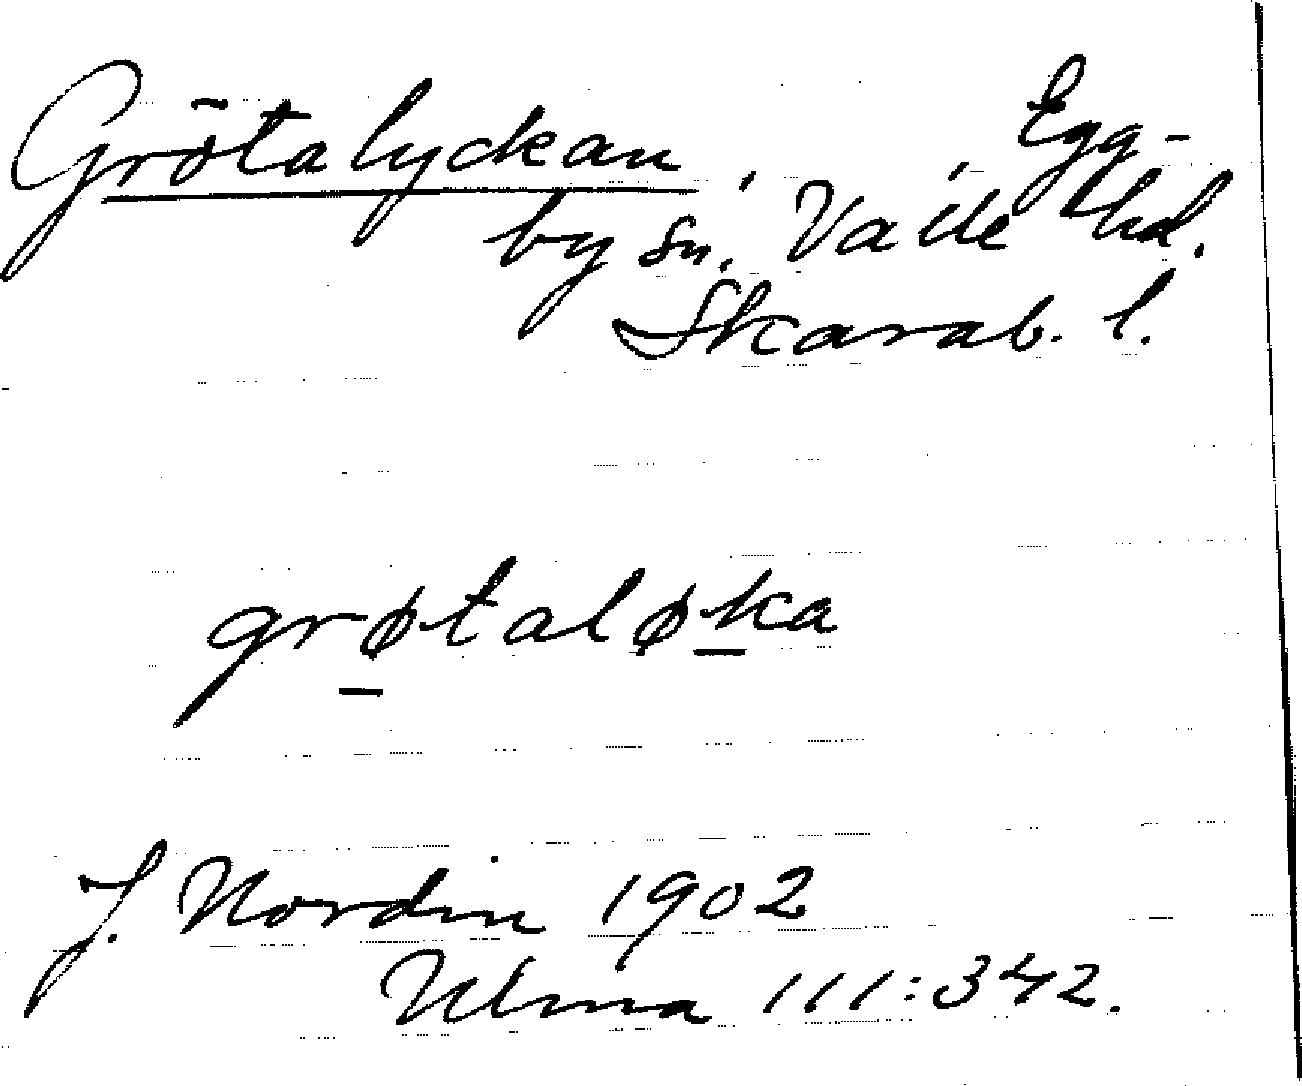 Grötalyckan,
by sn. Valle hd.
Egg-
Skarab. l.
grøtaløka
J. Nordin 1902
Ulma 111:342.